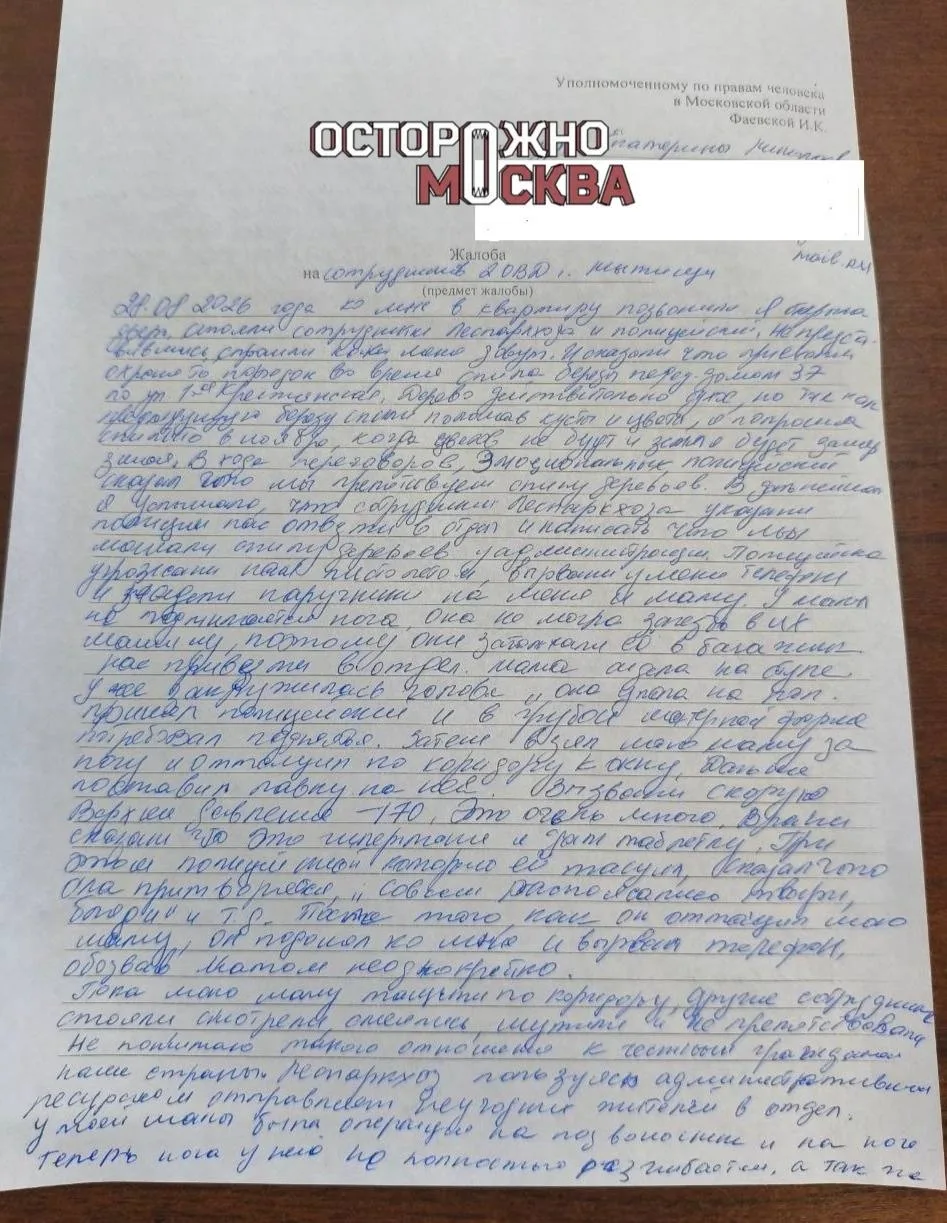 Уполномоченному по правам человека
в Московской области
Фаевской И.К.
ОСТОРОЖНО
МОСКВА
Екатерины
mail.ru
Жалоба
на сотрудников 2 ОВД г. Мытищи
(предмет жалобы)
28.08 2026 года ко мне в квартиру позвонили. Я открыла
дверь, стояли сотрудники Леспаркхоза и полицейский. Не предста-
вившись спросили как меня зовут. И сказали что приехали
охранять порядок во время спила березы перед домом 37
по ул. 1-ая Крестьянская. Дерево действительно сухое, но так как
предыдущую березу спилили поломав кусты и цветы, я попросила
спилить в ноябре, когда цветов не будет и земля будет замер
зшая. В ходе переговоров, эмоциональных полицейский
сказал что мы препятствуем спилу деревьев. В дальнейшем
я услышала, что сотрудники Леспаркхоза указали
полиции нас отвезти в отдел и написать что мы
мешали спилу деревьев у администрации. Полицейские
угрожали нам пистолетом, вырвали у меня телефон
и надели наручники на меня и маму. У мамы
не поднимается нога, она не могла залезть в их
машину, поэтому они затолкали её в багажник
нас привезли в отдел. мама сидела на стуле
у неё закружилась голова, она упала на пол.
пришел полицейский и в грубой матерной форме
потребовал подняться. Затем взял мою маму за
ногу и оттащил по коридору к окну, Дальше
поставил лавку на неё. Вызвали скорую
Верхнее давление - 170, Это очень много, врачи
сказали что это гипертония и дали таблетку. При
этом полицейский который её тащил, сказал что
она притворяется, "совсем распоясались твари,
" и т.д. После того, как он оттащил мою
маму, он подошел ко мне и вырвал телефон,
обозвав матом неоднократно.
Пока мою маму тащили по коридору, другие сотрудники
стояли смотрели, смеялись, шутили и не препятствовали
Не понимаю такого отношения к честным гражданам
нашей страны. Леспаркхоз пользуясь административным
ресурсом отправляет неугодных жителей в отдел.
У моей мамы была операция на позвоночник и на ноге
теперь нога у неё не полностью разгибается, а так же